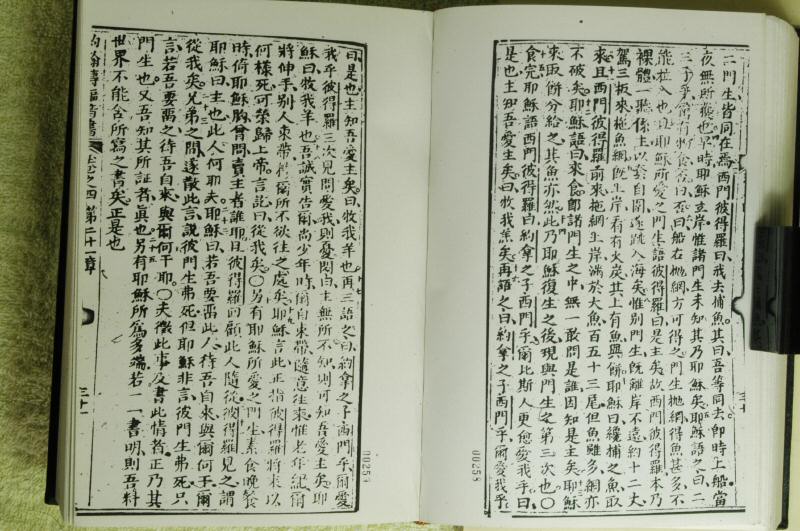 二門生皆同在焉西門彼得羅曰我去捕魚其曰吾等同去卽時上船當
夜無所獲也早時耶穌立岸惟諸門生未知其乃耶穌矣耶穌語之曰二
三子乎爾有物食否曰否曰船右抛網方可得之門生抛網得魚甚多不
能拉入也且耶穌所愛之門生語彼得羅曰是主矣故西門彼得羅本乃
裸體一聽係主以套自圍遂跳入海矣惟別門生旣離岸不遠約十二丈
駕三板來拖魚網旣上岸看有火炭其上有魚與餅耶穌曰纔捕之魚取
來且西門彼得羅前來拖網上岸滿於大魚百五十三尾但魚雖多網亦
不破矣耶穌語曰來食卽諸門生之中無一敢問是誰因知是主矣耶穌
來取餅分給之其魚亦然此乃耶穌復生之後現與門生之第三次也〇
食完耶穌語西門彼得羅曰約拿之子西門乎爾比斯人更愛我乎曰
是也主知吾愛主矣曰牧我羔矣再語之曰約拿之子西門乎爾愛我乎
三十
00258
曰是也主知吾愛主矣曰牧我羊也再三語之曰約拿之子西門乎爾愛
我乎彼得羅三次見問愛我則憂悶曰主無所不知則可知吾愛主矣耶
穌曰牧我羊也吾誠實告爾尚少年時爾自束帶隨意往來惟老年紀爾
將伸手別人束帶得爾所不欲往之處矣耶穌言此正指彼得羅將來以
何樣死可榮歸上帝言訖曰從我矣〇另有耶穌所愛之門生素食晚餐
時倚耶穌胸曾問賣主者誰耶且彼得羅回顧此人隨從彼得羅見之謂
耶穌曰主也此人何耶夫耶穌曰若吾要畱此人待吾自來與爾何干爾
從我矣兄弟之間遂散此言說彼門生弗死但耶穌非言彼門生弗死只
言若吾要畱之待吾自來與爾何干耶〇夫徵此事及書此情者正乃其
門生也又吾知其所証者眞也另有耶穌所爲多端若一一書明則吾料
世界不能含所寫之書矣正是也
約翰傳福音書
卷之四
第二十一章
三十一
00259